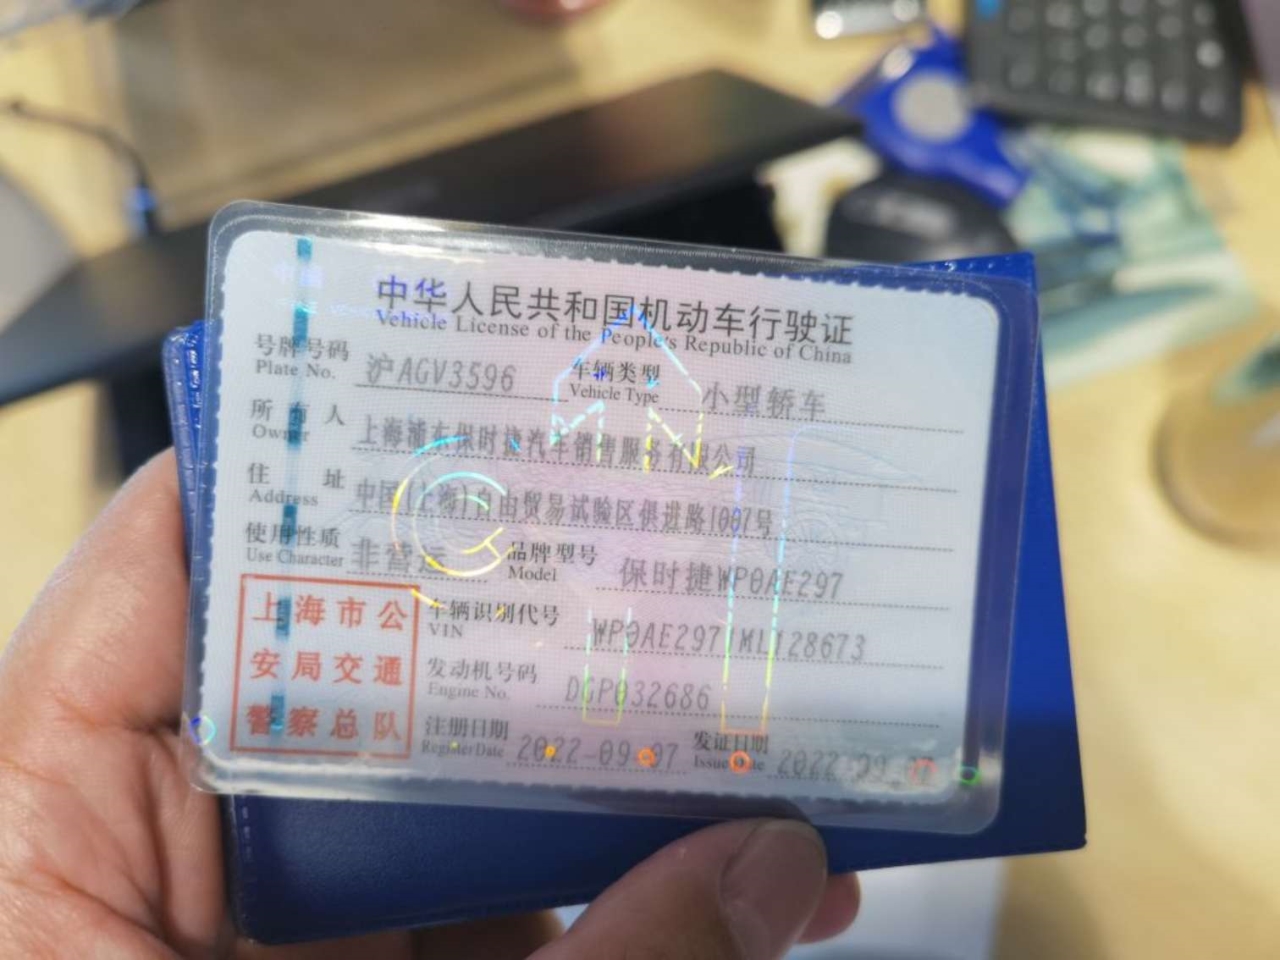 中华人民共和国机动车行驶证
Vehicle License of the People's Republic of China
号牌号码 沪AGV3596 车辆类型 小型轿车
Plate No. Vehicle Type
所有人 上海浦东保时捷汽车销售服务有限公司
Owner
住址 中国(上海)自由贸易试验区俱进路1007号
Address
使用性质 非营运 品牌型号 保时捷WP0AE297
Use Character Model
上海市公
安局交通
警察总队
车辆识别代号 WP0AE2971ML128673
VIN
发动机号码 DGP032686
Engine No.
注册日期 2022-09-07 发证日期 2022-09-07
Register Date Issue Date